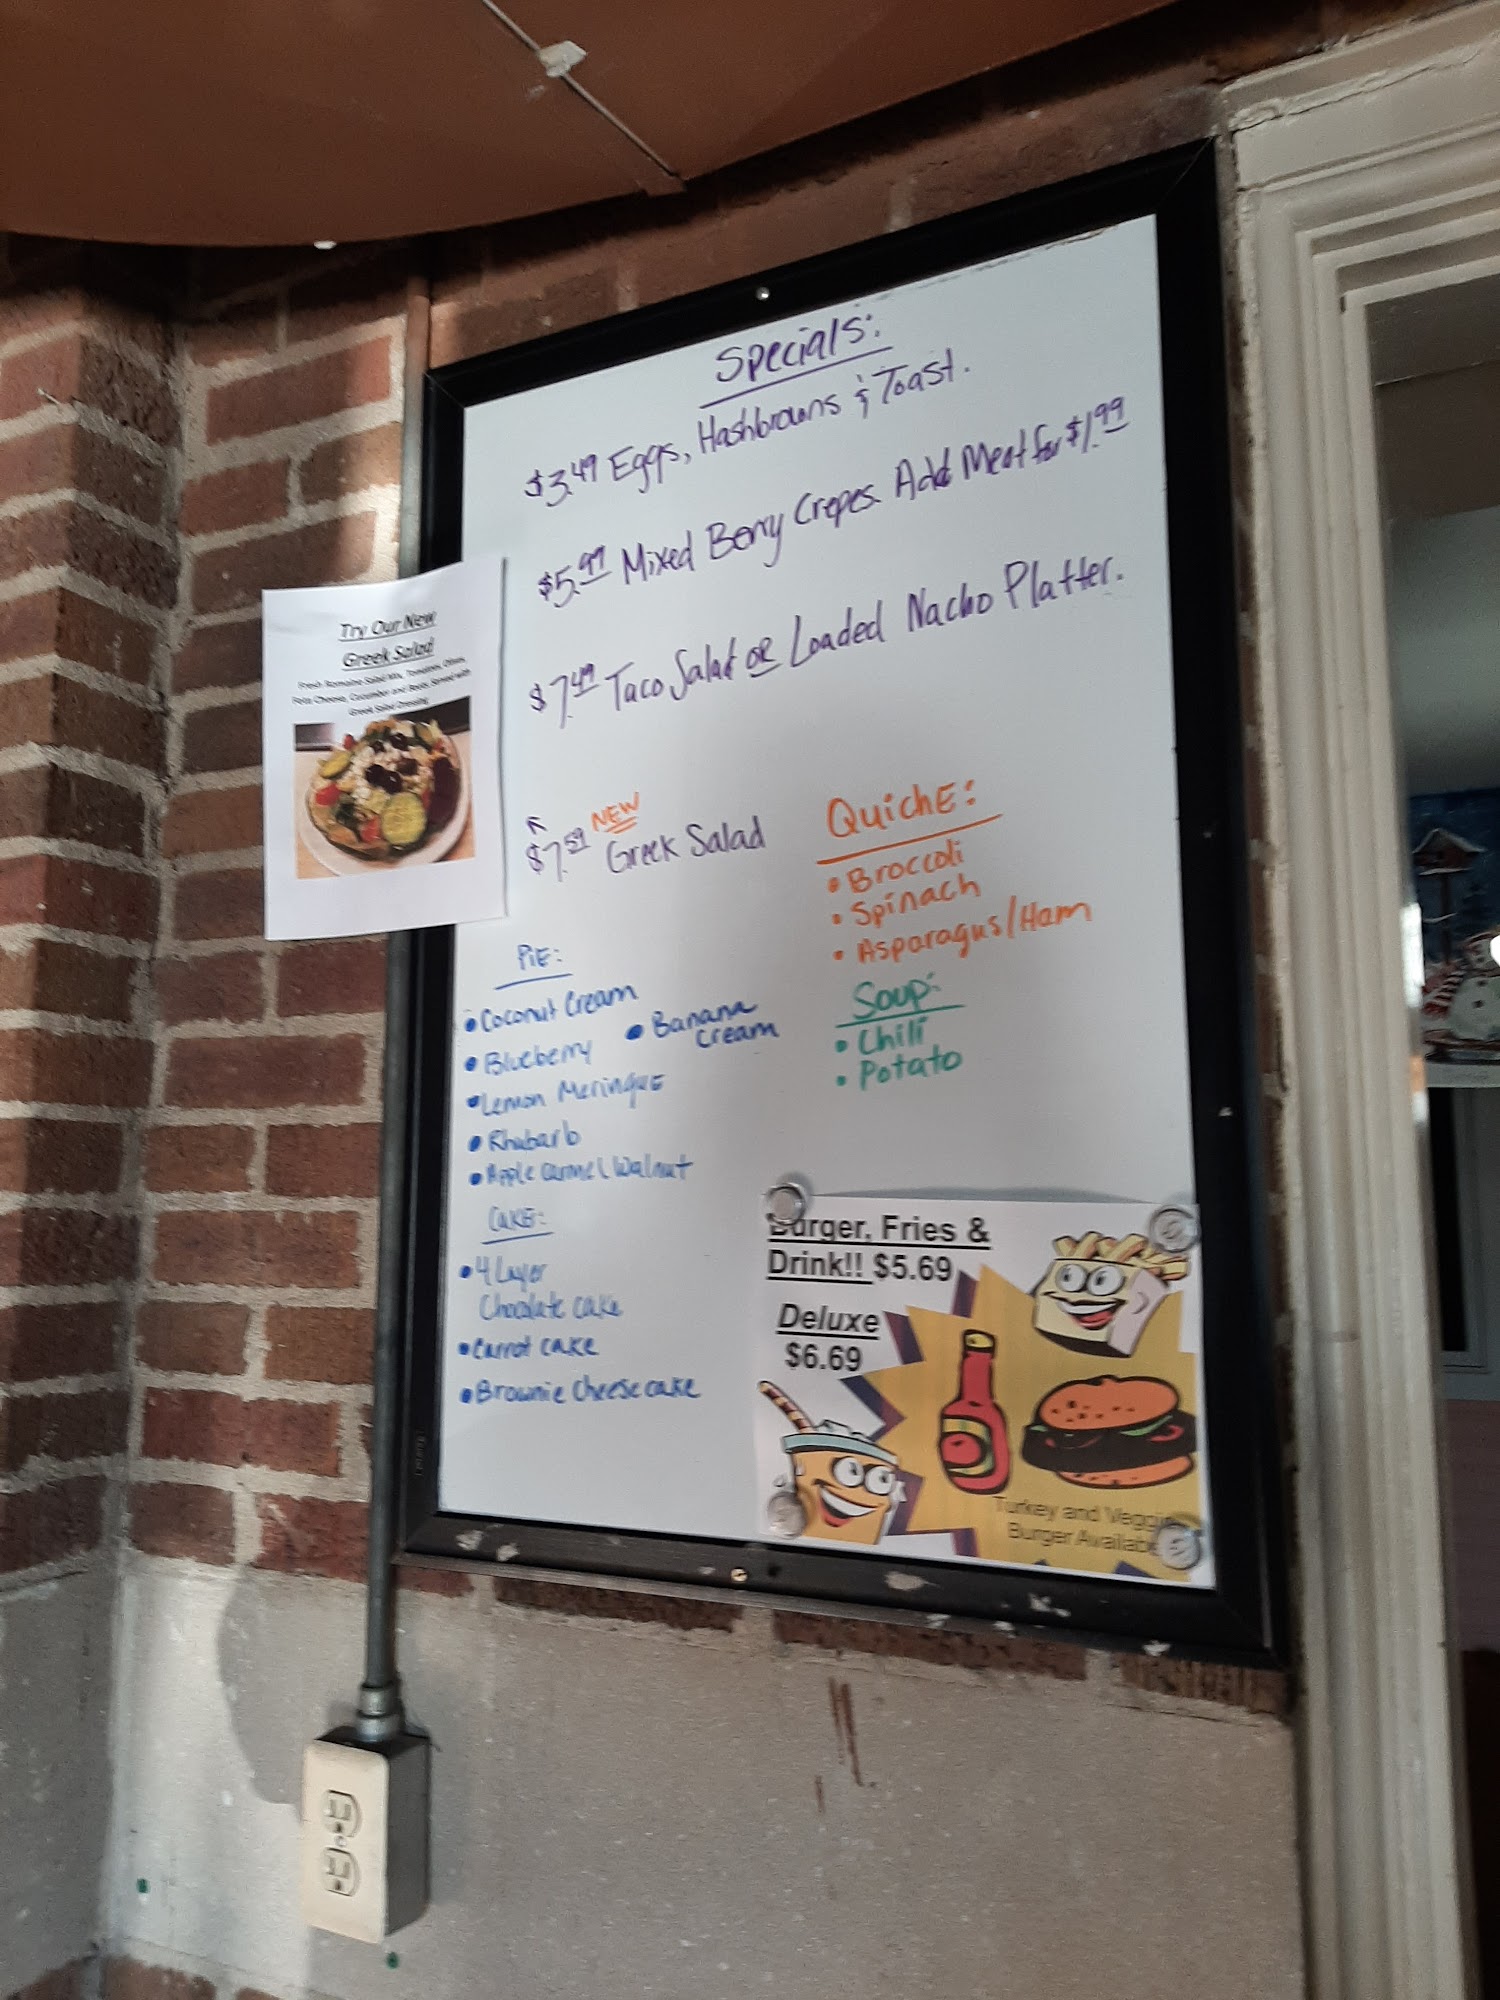 Specials:
$3.49 Eggs, Hashbrowns & Toast.
$5.99 Mixed Berry Crepes. Add Meat for $1.99
$7.49 Taco Salad OR Loaded Nacho Platter.
Try Our New
Greek Salad
Fresh Romaine Salad Mix, Tomatoes, Olives,
Feta Cheese, Cucumber and Beets Served with
Greek Salad Dressing
NEW
$7.59 Greek Salad
QuichE:
• Broccoli
• Spinach
• Asparagus/Ham
Soup:
• Chili
• Potato
PiE:
• Coconut Cream
• Blueberry
• Banana
Cream
• Lemon Meringue
• Rhubarb
• Apple Carmel Walnut
CAKE:
• 4 Layer
Chocolate cake
• Carrot cake
• Brownie Cheesecake
Burger, Fries &
Drink!! $5.69
Deluxe
$6.69
Turkey and Veggie
Burger Available